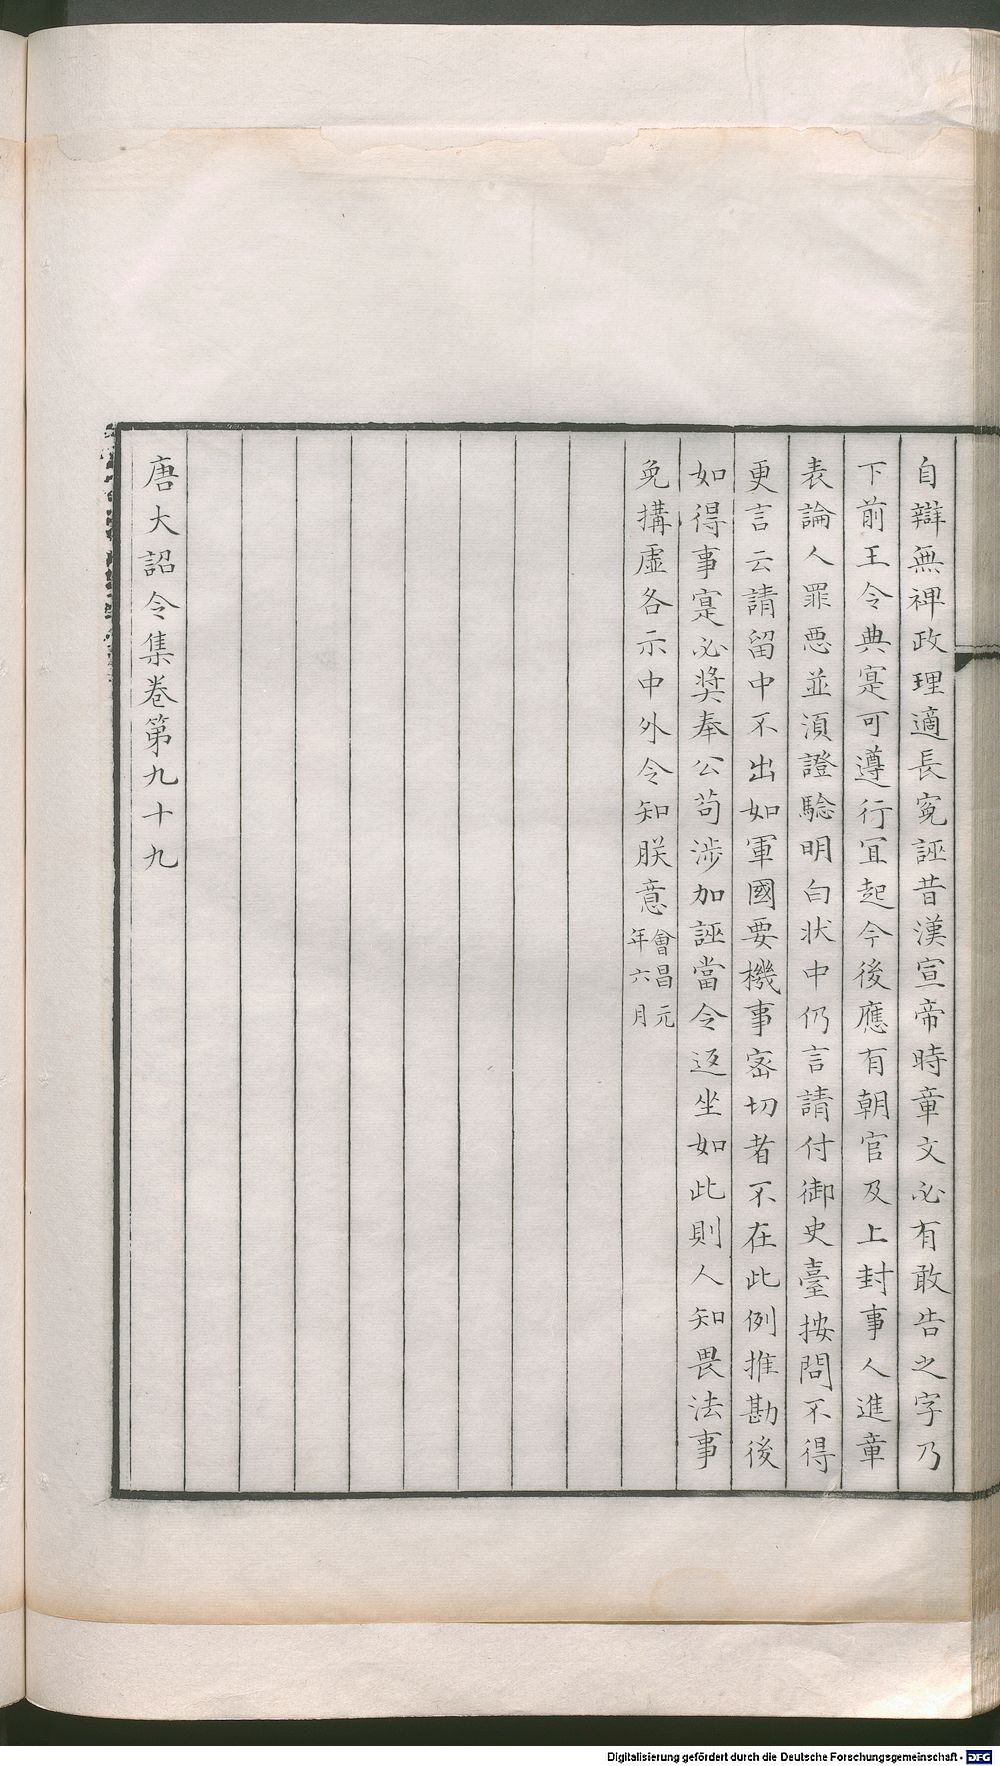 自辯無裨政理適長寃誣昔漢宣帝時章文必有敢告之字乃
下前王令典寔可遵行冝起今後應有朝官及上封事人進章
表論人罪惡並湏證驗明白状中仍言請付御史臺按問不得
更言云請留中不出如軍國要機事宻切者不在此例推勘後
如得事寔必奬奉公苟涉加誣當令返坐如此則人知畏法事
免搆虛各示中外令知朕意會昌元
年六月
唐大詔令集卷第九十九
Digitalisierung gefördert durch die Deutsche Forschungsgemeinschaft - DFG